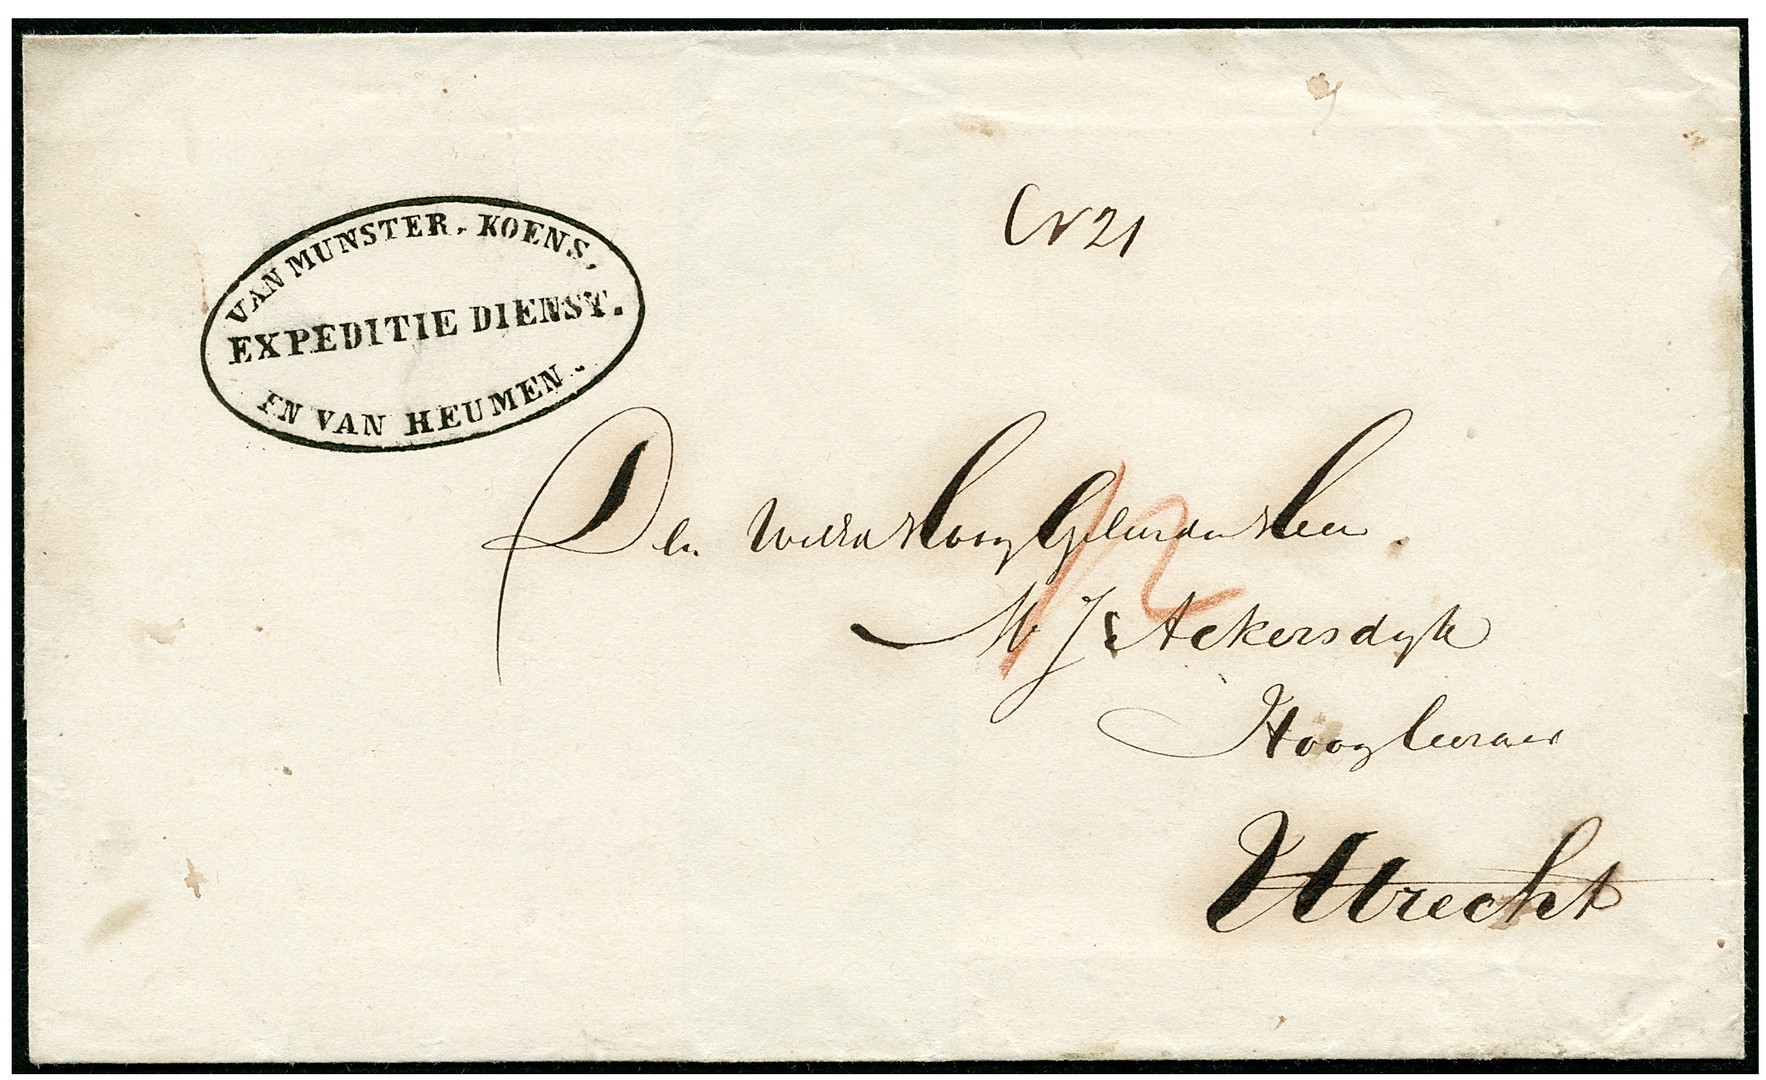 VAN MUNSTER, KOENS,
EXPEDITIE DIENST.
EN VAN HEUMEN.
Cr 21
Den WelEd HoogGeleerden Heer
12
Mr J. Ackersdyk
Hoogleeraar
Utrecht